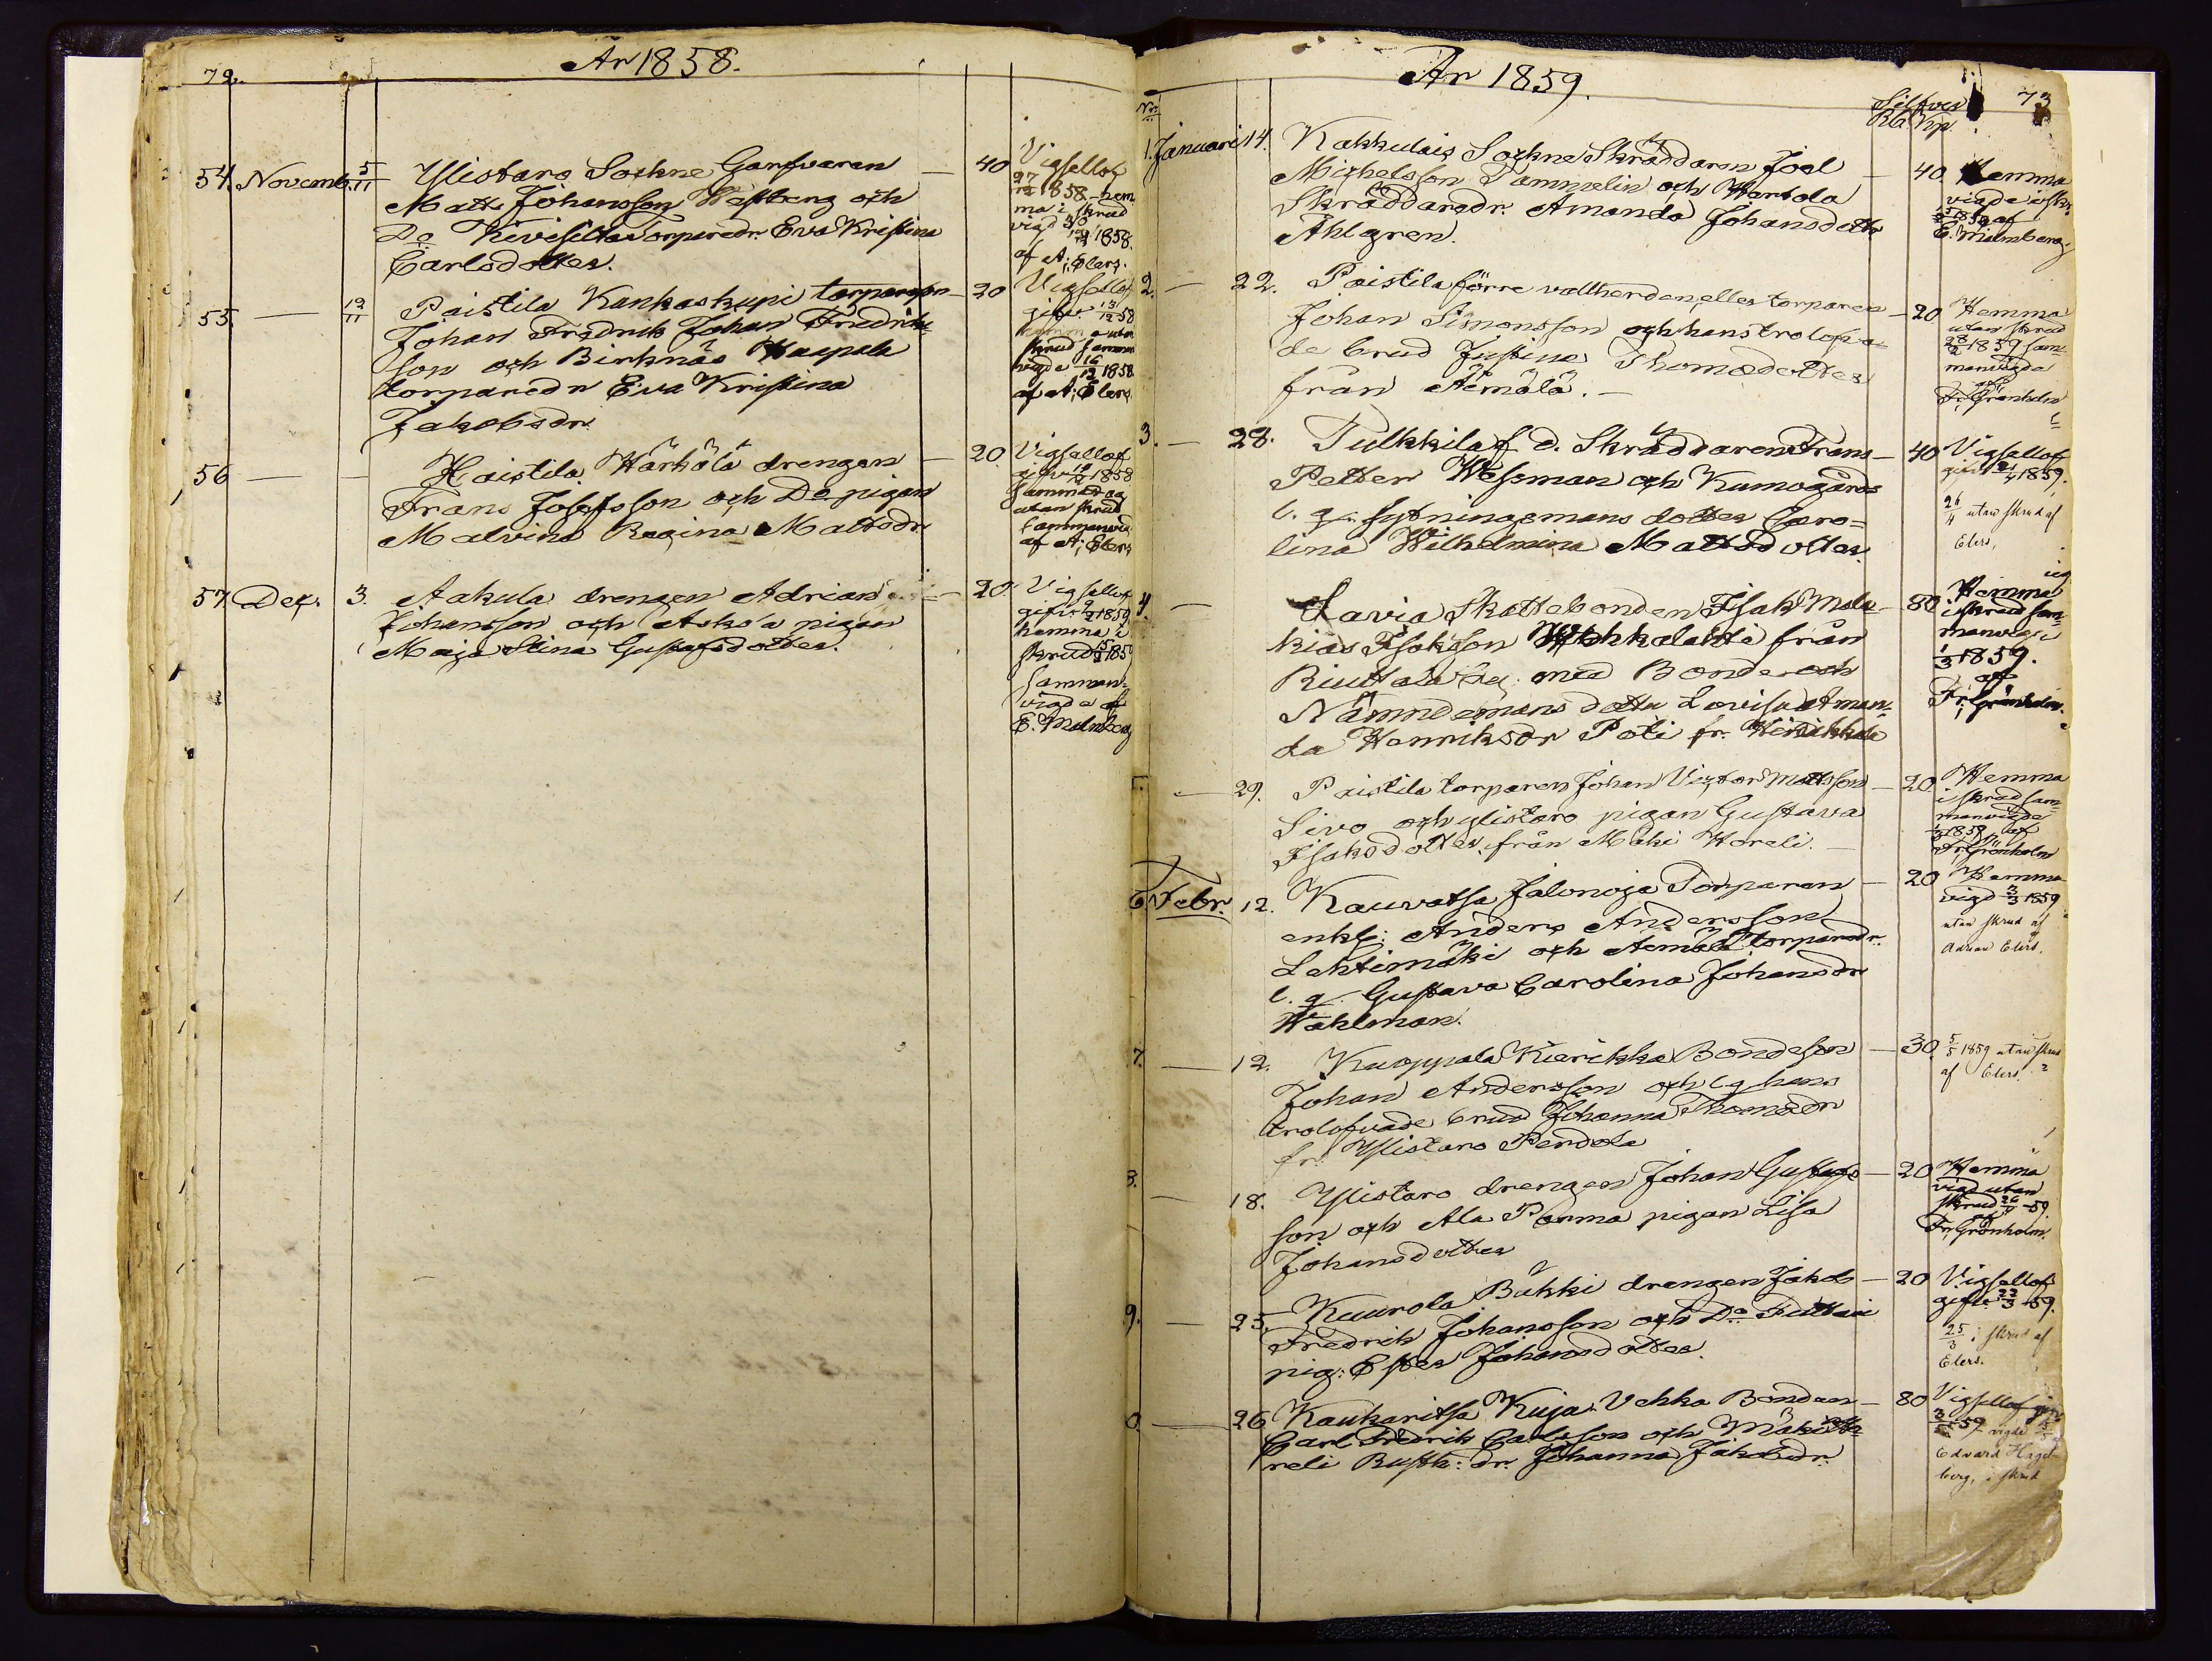 72.
År 1858.
54. Novemb. 5/11 Ylistaro Sockne Garfvaren — 40
Matts Johansson Westberg och
Do Kivisilta Torparedr. Eva Kristina
Carlsdotter.
Vigsellof
27/12 1858 hem
ma i skrud
vigd 1858.
af A. Elers.
55. — 12/11 Paistila Kankaskupi torpareson — 20
Johan Fredrik Johan Fredriks
son och Birknäs Haapala
torparedr Eva Kristina
Jakobsdr.
Vigsellof
gifvit 13/12 58
hemma utan
skrud samman
vigde 16/12 1858
af A. Elers
56 — — Haistila Härhälä drengen — 20.
Frans Josefsson och Do pigan
Malvina Regina Mattsdr
Vigsellof
gifvit 1858
samma dag
utan skrud
sammanvig
af A. Elers
57 Dec. 3. Aakula drengen Adrian — 20.
Johansson och Askola pigan
Maija Stina Gustafsdotter.
Vigsellof
gifvit 1859
hemma i
skrud 185
samman-
vigde af
E. Malmberg
År 1859.
73
No
Silfver
Rb. Kp.
1. Januari 14. Kakkulais Sockne Skräddaren Joel — 40.
Michelsson Tammelin och Wartola
Skräddaredr. Amanda Johansdotter
Ahlgren.
Hemma
vigde i skr.
1859 af
E. Malmberg.
2. — 22. Paistila förre vallherden, eller torparen — 20
Johan Simonsson och hans trolofva-
de brud Justina Thomædotter
från Aemälä. —
Hemma
utan skrud
28/2 1859 sam-
manvigde
af
Fr. Grönholm
3. — 28. Tulkkila f. d. Skräddaren Frans — 40
Petter Wesman och Kumogårds
l. q. sytningsmans dotter Caro-
lina Wilhelmina Mattsdotter.
Vigsellof
gifvit 1859.
26/4 utan skrud af
Elers.
4. — Lavia Skattebonden Isak Mala- — 80
kias Isaksson från
Riuttala by. med Bonde och
Nämndemans dotter Lovisa Aman-
da Henriksdr Poti fr.
Hemma
i skrud sam-
manvigde
1/3 1859.
af
Fr. Grönholm.
5. — 29. Paistila torparen Johan Victor Mattsson — 20.
Sivo och Ylistaro pigan Gustava
Isaksdotter, från Mäki Horeli. —
Hemma
i skrud sam-
manvigde
1859 af
Fr. Grönholm
6. Febr. 12. Kauvatsa Jalonoja Torparen — 20
enkl: Anders Andersson
Lehtimäki och Aemälä torparedr.
l. q. Gustava Carolina Johansdr
Wahlman.
Hemma
vigd 3/3 1859
utan skrud af
Adrian Elers.
7. — 12. Kuoppala Kierikka Bondeson — 30
Johan Andersson och l q hans
trolofvade brud Johanna Thomædr
fr. Ylistaro Pendola
5/5 1859 utan skrud
af Elers.
8. — 18. Ylistaro drengen Johan Gustafs — 20
son och Ala Panma pigan Lisa
Johansdotter
Hemma
vigd utan
skrud -59
Fr. Grönholm.
9. — 25. Kuurola Bäkki drengen Jakob — 20
Fredrik Johansson och Do
pig: Ester Johansdotter.
Vigsellof
gifvit 23/3 -59.
25/3 i skrud af
Elers.
0. — 26 Kaukaritsa Kuja Vehka Bonden — 80
Carl Fredrik Carlsson och Mäki Ho-
reli Rusth: dr. Johanna Jakobsdr.
Vigsellof
-59 vigde
Edvard Hagel-
berg, i skrud